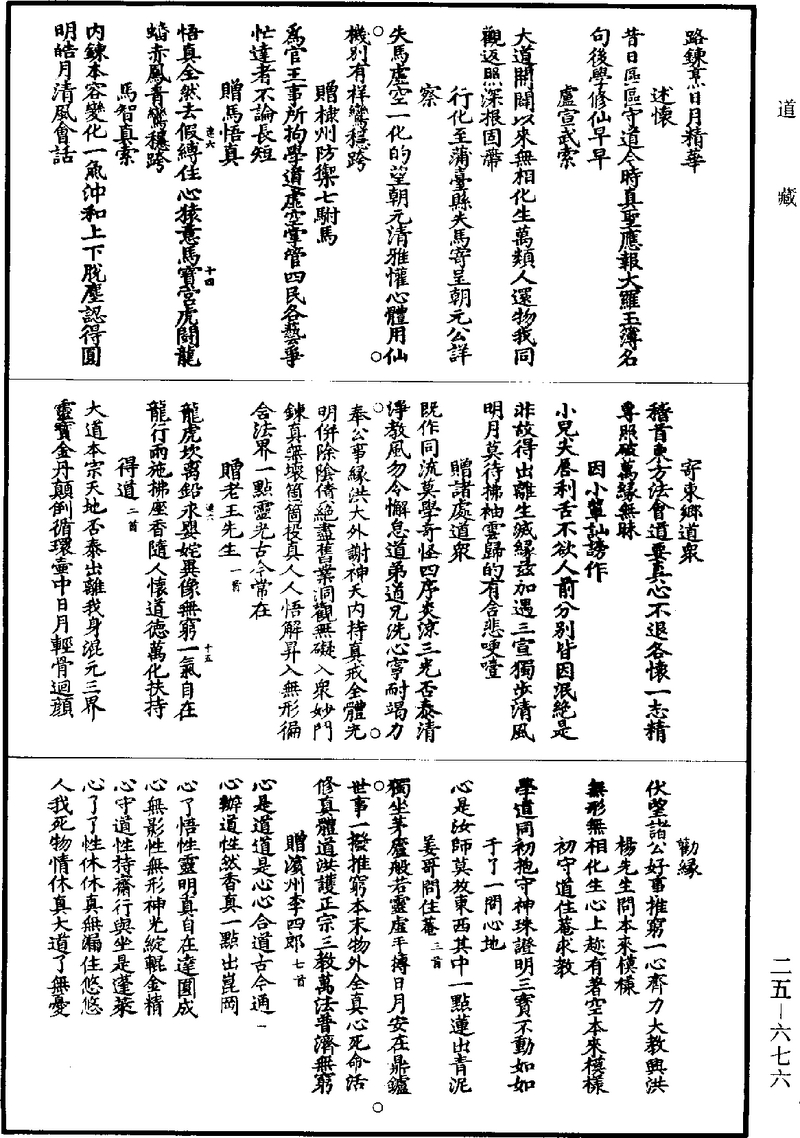 道藏
路鍊烹日月精華
述懷
昔日區區守道今時真聖應報大羅玉簿名
句後學修仙早早
盧宣武索
大道開闢以來無相化生萬類人還物我同
觀返照深根固蔕
行化至蒲臺縣失馬寄呈朝元公詳
察
失馬虛空一化的望朝元清雅懽心體用仙
機別有祥鸞穩跨
贈棣州防禦七駙馬
爲官王事所拘學道虛空掌管四民各藝爭
忙達者不論長短
贈馬悟真
悟真全然去假縛住心猿意馬寶宮虎鬪龍
蟠赤鳳青鸞穩跨
馬智真索
內鍊本容變化一氣沖和上下脫塵認得圓
明皓月清風會話
寄東鄉道衆
稽首東方法會道要真心不退各懷一志精
專照破萬緣無昧
因小輩訕謗作
小兄夫唇利舌不欲人前分別皆因泯絶是
非故得出離生滅緣茲加遇三宣獨步清風
明月莫待拂袖雲歸的有含悲哽噎
贈諸處道衆
既作同流莫學奇怪四序炎涼三光否泰清
淨教風勿令懈怠道弟道兄洗心寧耐竭力
奉公事緣洪大外謝神天內持真戒全體光
明併除陰倚絶盡舊業洞觀無礙入衆妙門
鍊真無壞箇箇投真人人悟解昇入無形徧
合法界一點靈光古今常在
贈老王先生一首
龍虎坎离鉛汞嬰姹異像無窮一氣自在
龍行雨施拂座香隨人懷道德萬化扶持
得道二首
大道本宗天地否泰出離我身混元三界
靈寶金丹顛倒循環壷中日月輕骨迴顔
勸緣
伏望諸公好事推窮一心齊力大教興洪
楊先生問本來模樣
無形無相化生心上趂有著空本來模樣
初守道住菴求教
學道同初抱守神珠證明三寶不動如如
于了一問心地
心是汝師莫放東西其中一點蓮出青泥
姜哥問住菴三首
獨坐茅廬般若靈虛平摶日月安在鼎鑪
世事一撥推窮本末物外全真心死命活
修真體道洪護正宗三教萬法普濟無窮
贈濱州李四郎七首
心是道道是心心合道古今通一
心辦道性然香真一點出崑岡
心了悟性靈明真自在達圓成
心無影性無形神光綻輥金精
心守道性持齋行與坐是蓬萊
心了了性休休真無漏住悠悠
人我死物情休真大道了無憂
二五—六七六